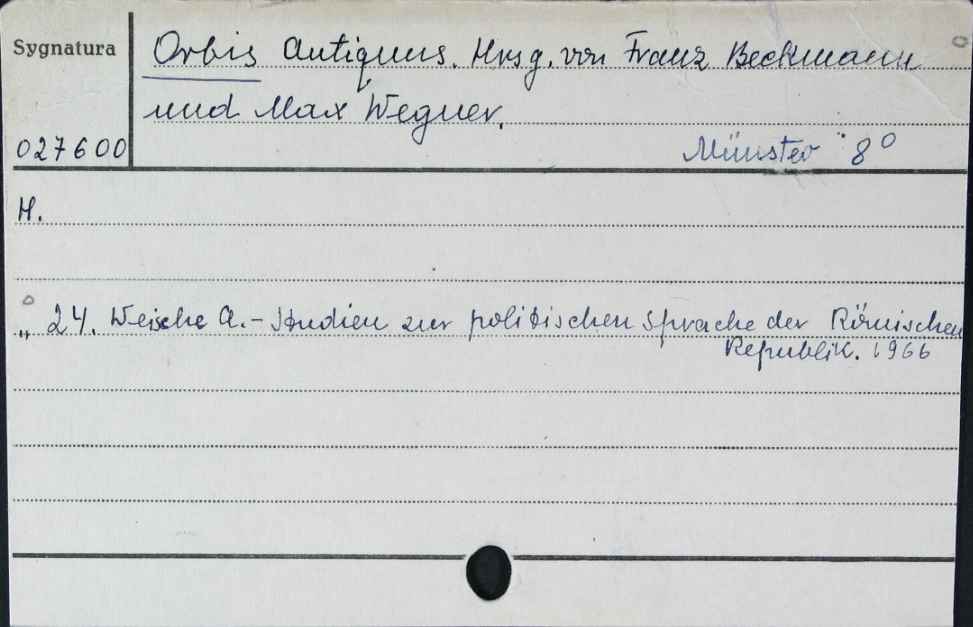 Sygnatura
Orbis Antiquus. Hrsg. von Franz Beckmann
und Max Wegner.
027600
Münster 8°
H.
„ 24. Weische A. - Studien zur politischen Sprache der Römischen
Republik. 1966